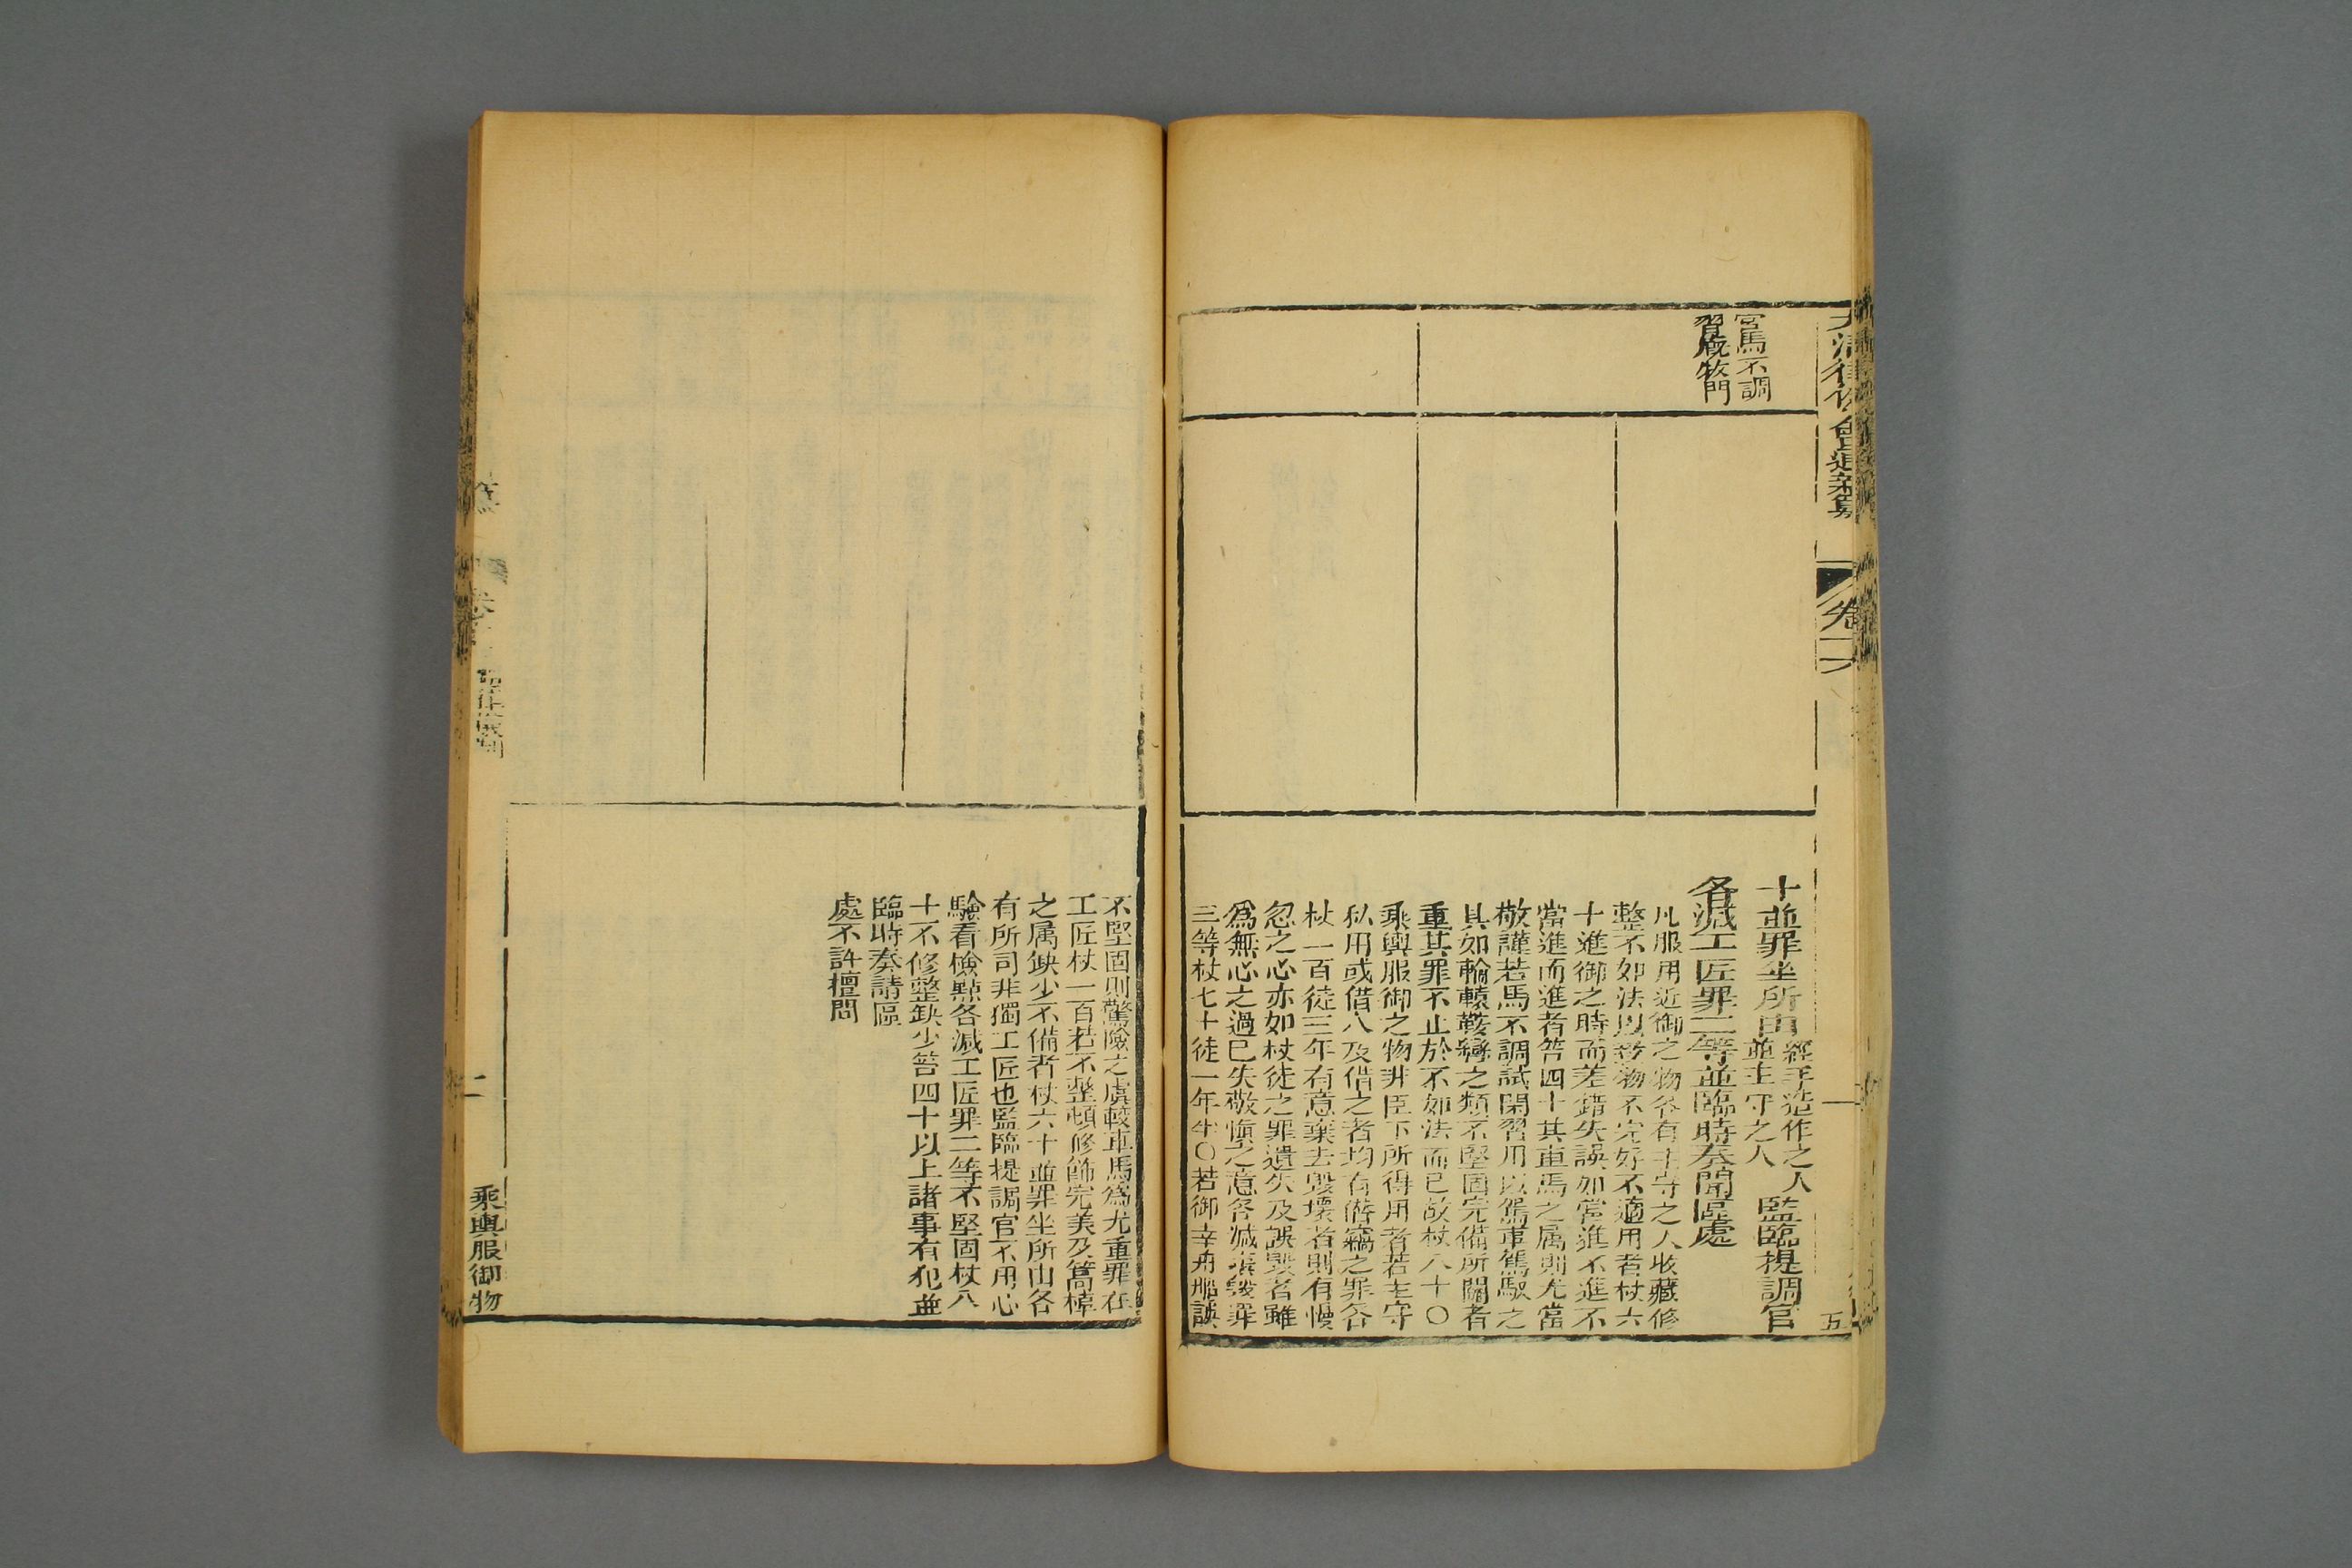 大清律例會通新纂
卷一六
五
官馬不調
習廐牧門
十並罪坐所由經手造作之人並主守之人監臨提調官
各減工匠罪二等並臨時奏聞區處
凡服用近御之物各有主守之人收藏修
整不如法以致物不完好不適用者杖六
十進御之時而差錯失誤如當進不進不
當進而進者笞四十其車馬之属則尤當
敬謹若馬不調試閑習用以駕車駕馭之
具如輪轅鞍轡之類不堅固完備所關者
重其罪不止於不如法而已故杖八十〇
乘輿服御之物非臣下所得用者若主守
私用或借人及借之者均有僭竊之罪各
杖一百徒三年有意棄去毀壞者則有慢
忽之心亦如杖徒之罪遺失及誤毀者雖
爲無心之過已失敬愼之意各減棄毀罪
三等杖七十徒一年半〇若御幸舟船誤
不堅固則驚險之虞較車馬爲尤重罪在
工匠杖一百若不整頓修飾完美及篙棹
之属缺少不備者杖六十並罪坐所由各
有所司非獨工匠也監臨提調官不用心
驗看檢點各減工匠罪二等不堅固杖八
十不修整缺少笞四十以上諸事有犯並
臨時奏請區
處不許擅問
二
乘輿服御物